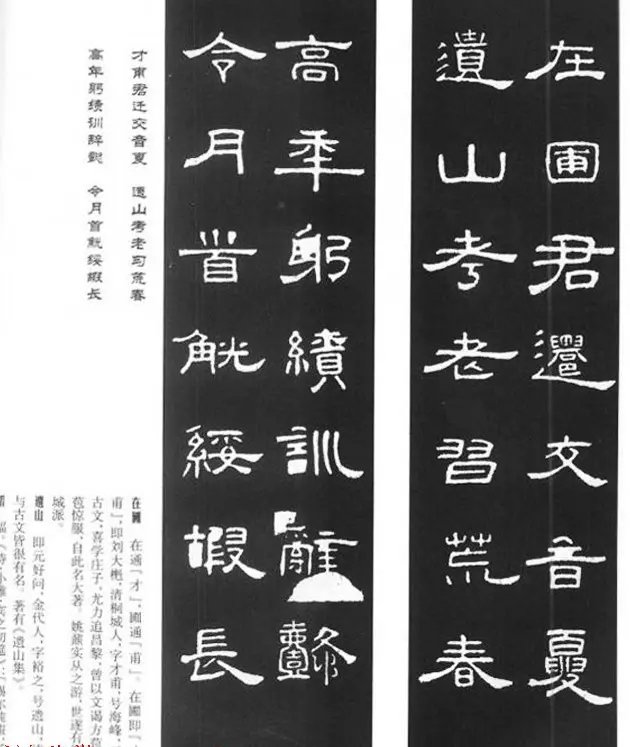 在圃君遷文音夏
遺山考老習荒春
高年躬績訓辭懿
令月首觥綏嘏長
才甫君迁文音夏 遗山考老习荒春
高年躬绩训辞懿 令月首觥绥嘏长
在圃 在通『才』，圃通『甫』。在圃即『才
甫』，即刘大櫆，清桐城人，字才甫，号海峰，
古文，喜学庄子，尤力追昌黎，曾以文谒方苞
苞惊服，自此名大著。姚鼐实从之游，世遂有
城派。
遗山 即元好问，金代人，字裕之，号遗山，
与古文皆很有名。著有《遗山集》。
福。《诗·小雅·宾之初筵》：『锡尔纯嘏，